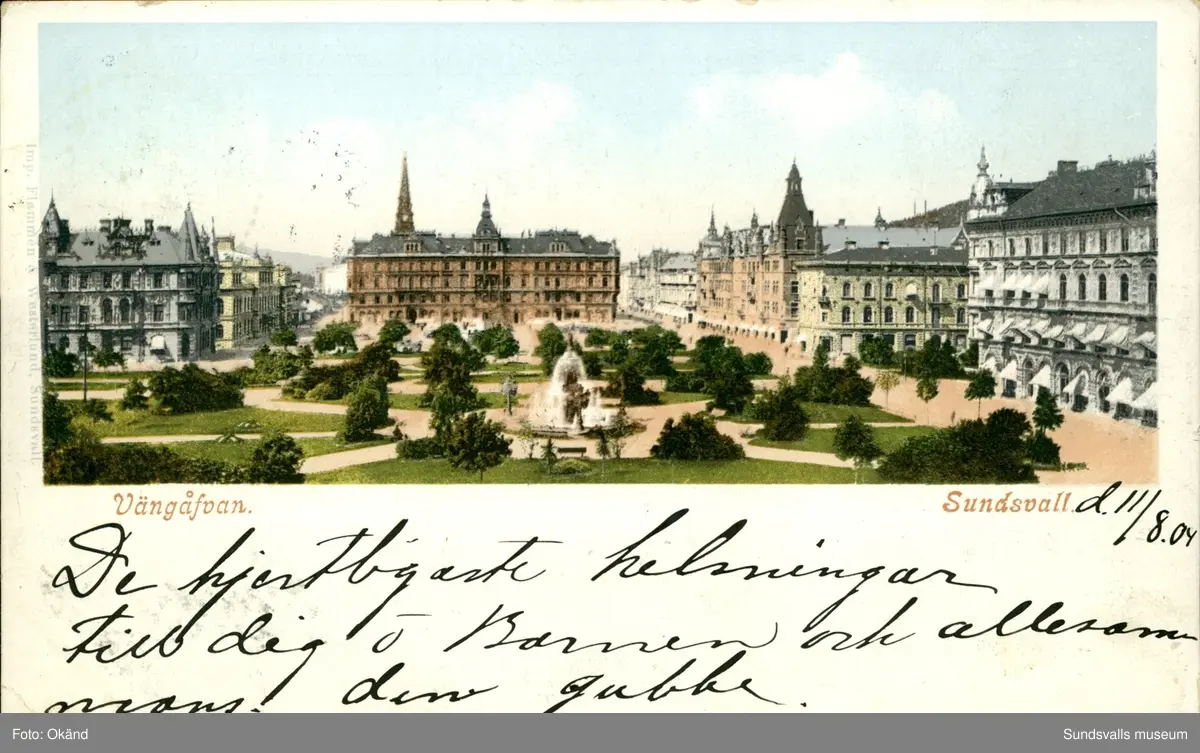 Imp. Flammeus & Västerlund, Sundsvall.
Vängåfvan.
Sundsvall. d. 11/8.04
De hjertligaste helsningar
till dig o Barnen och allesam
mans. den gubbe.
Foto: Okänd
Sundsvalls museum